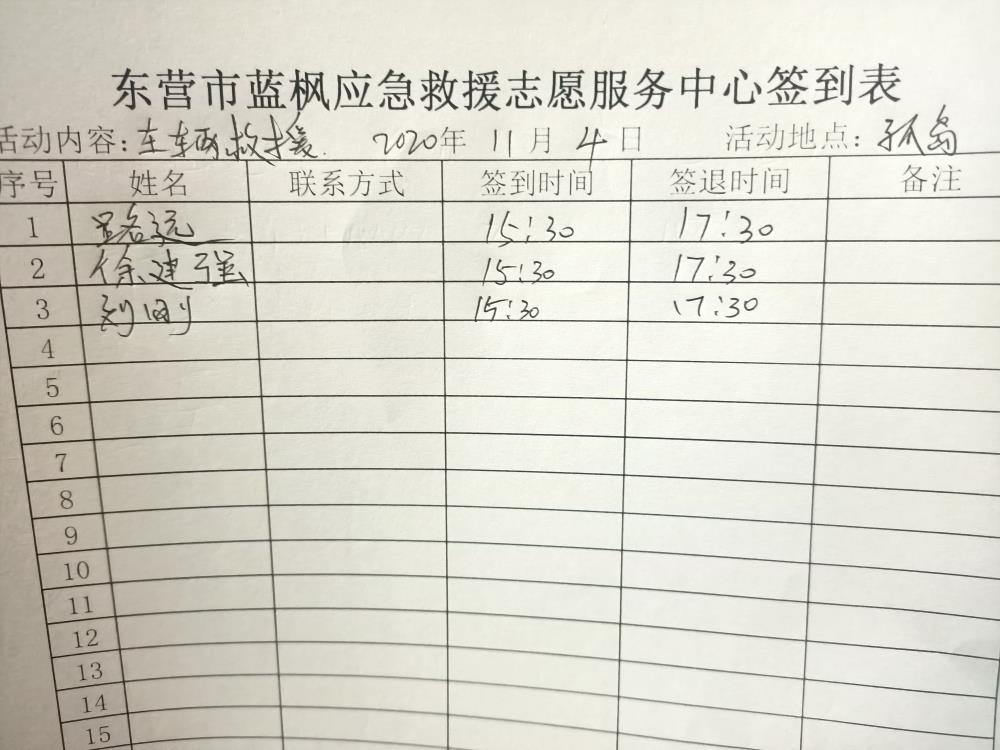 东营市蓝枫应急救援志愿服务中心签到表
活动内容:车辆救援. 2020年 11月 4日 活动地点:孤岛
序号 姓名 联系方式 签到时间 签退时间 备注
1 15:30 17:30
2 徐建强 15:30 17:30
3 刘刚 15:30 17:30
4
5
6
7
8
9
10
11
12
13
14
15